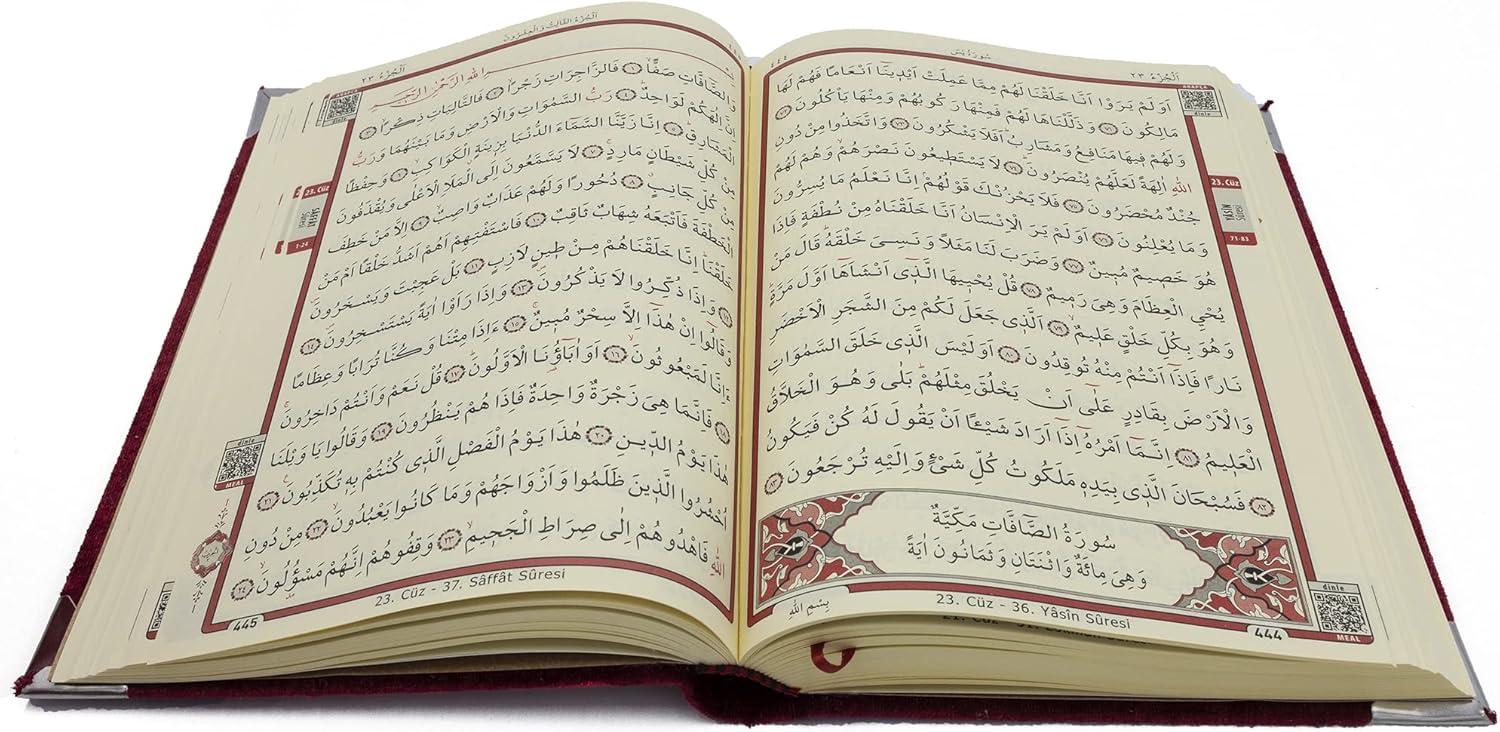 سُورَةُ يٰسٓ
اَلْجُزْءُ ٢٣
٤٤٤
ARAPÇA
dinle
23. Cüz
YÂSİN
SÛRESİ
71-83
اَوَلَمْ يَرَوْا اَنَّا خَلَقْنَا لَهُمْ مِمَّا عَمِلَتْ اَيْد۪ينَٓا اَنْعَامًا فَهُمْ لَهَا
مَالِكُونَ ﴿٧١﴾ وَذَلَّلْنَاهَا لَهُمْ فَمِنْهَا رَكُوبُهُمْ وَمِنْهَا يَأْكُلُونَ ﴿٧٢﴾
وَلَهُمْ ف۪يهَا مَنَافِعُ وَمَشَارِبُۜ اَفَلَا يَشْكُرُونَ ﴿٧٣﴾ وَاتَّخَذُوا مِنْ دُونِ
اللّٰهِ اٰلِهَةً لَعَلَّهُمْ يُنْصَرُونَۜ ﴿٧٤﴾ لَا يَسْتَط۪يعُونَ نَصْرَهُمْۙ وَهُمْ لَهُمْ
جُنْدٌ مُحْضَرُونَ ﴿٧٥﴾ فَلَا يَحْزُنْكَ قَوْلُهُمْۢ اِنَّا نَعْلَمُ مَا يُسِرُّونَ
وَمَا يُعْلِنُونَ ﴿٧٦﴾ اَوَلَمْ يَرَ الْاِنْسَانُ اَنَّا خَلَقْنَاهُ مِنْ نُطْفَةٍ فَاِذَا
هُوَ خَص۪يمٌ مُب۪ينٌ ﴿٧٧﴾ وَضَرَبَ لَنَا مَثَلًا وَنَسِيَ خَلْقَهُۜ قَالَ مَنْ
يُحْيِ الْعِظَامَ وَهِيَ رَم۪يمٌ ﴿٧٨﴾ قُلْ يُحْي۪يهَا الَّذ۪ٓي اَنْشَاَهَٓا اَوَّلَ مَرَّةٍۜ
وَهُوَ بِكُلِّ خَلْقٍ عَل۪يمٌۙ ﴿٧٩﴾ اَلَّذ۪ي جَعَلَ لَكُمْ مِنَ الشَّجَرِ الْاَخْضَرِ
نَارًا فَاِذَٓا اَنْتُمْ مِنْهُ تُوقِدُونَ ﴿٨٠﴾ اَوَلَيْسَ الَّذ۪ي خَلَقَ السَّمٰوَاتِ
وَالْاَرْضَ بِقَادِرٍ عَلٰٓى اَنْ يَخْلُقَ مِثْلَهُمْۜ بَلٰى وَهُوَ الْخَلَّاقُ
الْعَل۪يمُ ﴿٨١﴾ اِنَّمَٓا اَمْرُهُٓ اِذَٓا اَرَادَ شَيْـًٔا اَنْ يَقُولَ لَهُ كُنْ فَيَكُونُ
﴿٨٢﴾ فَسُبْحَانَ الَّذ۪ي بِيَدِه۪ مَلَكُوتُ كُلِّ شَيْءٍ وَاِلَيْهِ تُرْجَعُونَ ﴿٨٣﴾
سُورَةُ الصَّٓافَّاتِ مَكِّيَّةٌ
وَهِيَ مِائَةٌ وَاثْنَتَانِ وَثَمَانُونَ اٰيَةً
بِسْمِ اللّٰهِ
23. Cüz - 36. Yâsîn Sûresi
444
dinle
MEAL
اَلْجُزْءُ الثَّالِثُ وَالْعِشْرُونَ
اَلْجُزْءُ ٢٣
ARAPÇA
dinle
23. Cüz
SÂFFÂT
SÛRESİ
1-24
اللّٰهِ الرَّحْمٰنِ الرَّح۪يمِ
وَالصَّٓافَّاتِ صَفًّاۙ ﴿١﴾ فَالزَّاجِرَاتِ زَجْرًاۙ ﴿٢﴾ فَالتَّالِيَاتِ ذِكْرًاۙ ﴿٣﴾
اِنَّ اِلٰهَكُمْ لَوَاحِدٌۜ ﴿٤﴾ رَبُّ السَّمٰوَاتِ وَالْاَرْضِ وَمَا بَيْنَهُمَا وَرَبُّ
الْمَشَارِقِۜ ﴿٥﴾ اِنَّا زَيَّنَّا السَّمَٓاءَ الدُّنْيَا بِز۪ينَةٍۨ الْكَوَاكِبِۙ ﴿٦﴾ وَحِفْظًا
مِنْ كُلِّ شَيْطَانٍ مَارِدٍۚ ﴿٧﴾ لَا يَسَّمَّعُونَ اِلَى الْمَلَأِ الْاَعْلٰى وَيُقْذَفُونَ
مِنْ كُلِّ جَانِبٍۗ ﴿٨﴾ دُحُورًا وَلَهُمْ عَذَابٌ وَاصِبٌۙ ﴿٩﴾ اِلَّا مَنْ خَطِفَ
الْخَطْفَةَ فَاَتْبَعَهُ شِهَابٌ ثَاقِبٌ ﴿١٠﴾ فَاسْتَفْتِهِمْ اَهُمْ اَشَدُّ خَلْقًا اَمْ مَنْ
خَلَقْنَاۜ اِنَّا خَلَقْنَاهُمْ مِنْ ط۪ينٍ لَازِبٍ ﴿١١﴾ بَلْ عَجِبْتَ وَيَسْخَرُونَۖ
﴿١٢﴾ وَاِذَا ذُكِّرُوا لَا يَذْكُرُونَۖ ﴿١٣﴾ وَاِذَا رَاَوْا اٰيَةً يَسْتَسْخِرُونَۖ ﴿١٤﴾
وَقَالُٓوا اِنْ هٰذَٓا اِلَّا سِحْرٌ مُب۪ينٌۚ ﴿١٥﴾ ءَاِذَا مِتْنَا وَكُنَّا تُرَابًا وَعِظَامًا
ءَاِنَّا لَمَبْعُوثُونَۙ ﴿١٦﴾ اَوَاٰبَٓاؤُ۬نَا الْاَوَّلُونَۜ ﴿١٧﴾ قُلْ نَعَمْ وَاَنْتُمْ دَاخِرُونَۚ
﴿١٨﴾ فَاِنَّمَا هِيَ زَجْرَةٌ وَاحِدَةٌ فَاِذَا هُمْ يَنْظُرُونَ ﴿١٩﴾ وَقَالُوا يَا وَيْلَنَا
هٰذَا يَوْمُ الدّ۪ينِ ﴿٢٠﴾ هٰذَا يَوْمُ الْفَصْلِ الَّذ۪ي كُنْتُمْ بِه۪ تُكَذِّبُونَ۟ ﴿٢١﴾
اُحْشُرُوا الَّذ۪ينَ ظَلَمُوا وَاَزْوَاجَهُمْ وَمَا كَانُوا يَعْبُدُونَۙ ﴿٢٢﴾ مِنْ دُونِ
اللّٰهِ فَاهْدُوهُمْ اِلٰى صِرَاطِ الْجَح۪يمِ ﴿٢٣﴾ وَقِفُوهُمْ اِنَّهُمْ مَسْؤُ۫لُونَۙ ﴿٢٤﴾
dinle
MEAL
23. Cüz - 37. Sâffât Sûresi
445